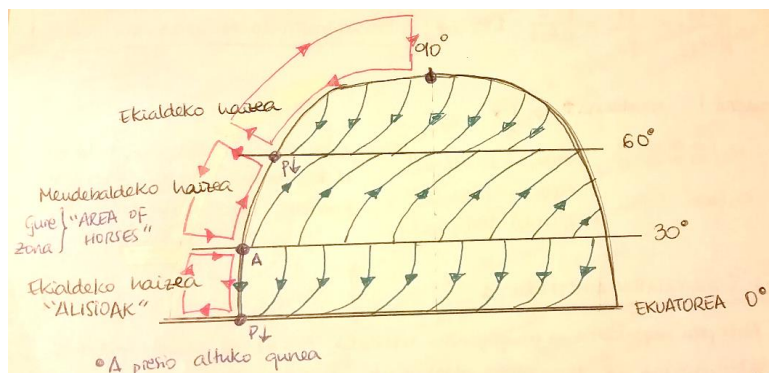 90°
Ekialdeko haizea
60°
P↓
Mendebaldeko haizea
Gure zona } "AREA OF HORSES"
30°
A
Ekialdeko haizea
"ALISIOAK"
EKUATOREA 0°
P↓
• A presio altuko gunea